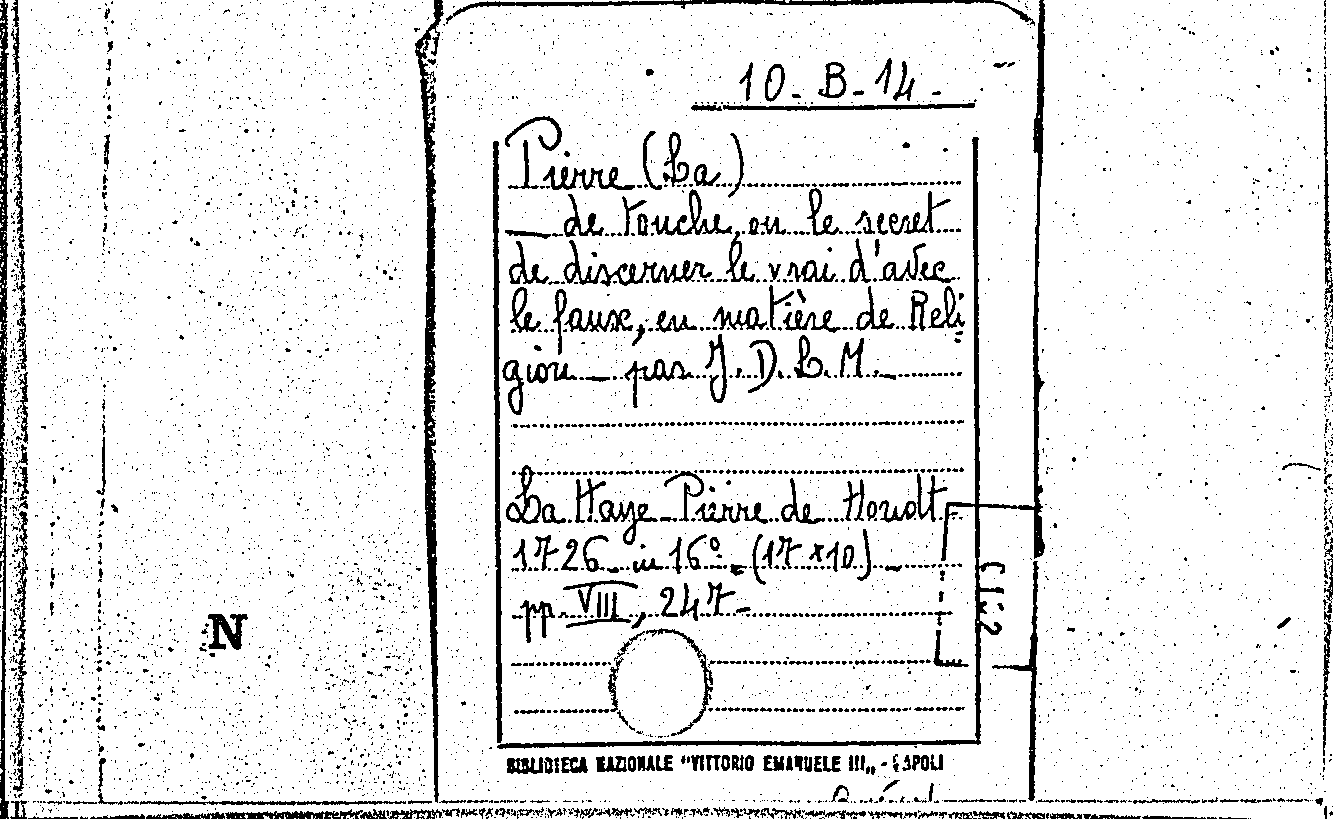 10-B-14-
Pierre (La)
— de touche, ou le secret
de discerner le vrai d'avec
le faux, en matière de Reli
gion — par J. D. L. M. —
La Haye Pierre de Hondt
1726 - in 16º - (17 x 10) -
pp. VIII, 247 -
N
BIBLIOTECA NAZIONALE "VITTORIO EMANUELE III„ - NAPOLI